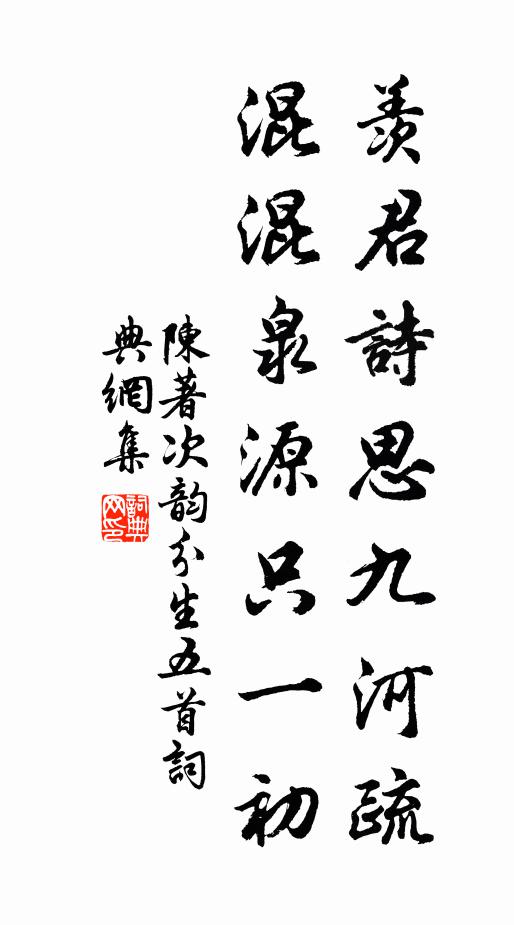 羨君詩思九河疏
混混泉源只一初
陳著次韵介生五首詞
典網集
詞典
网印